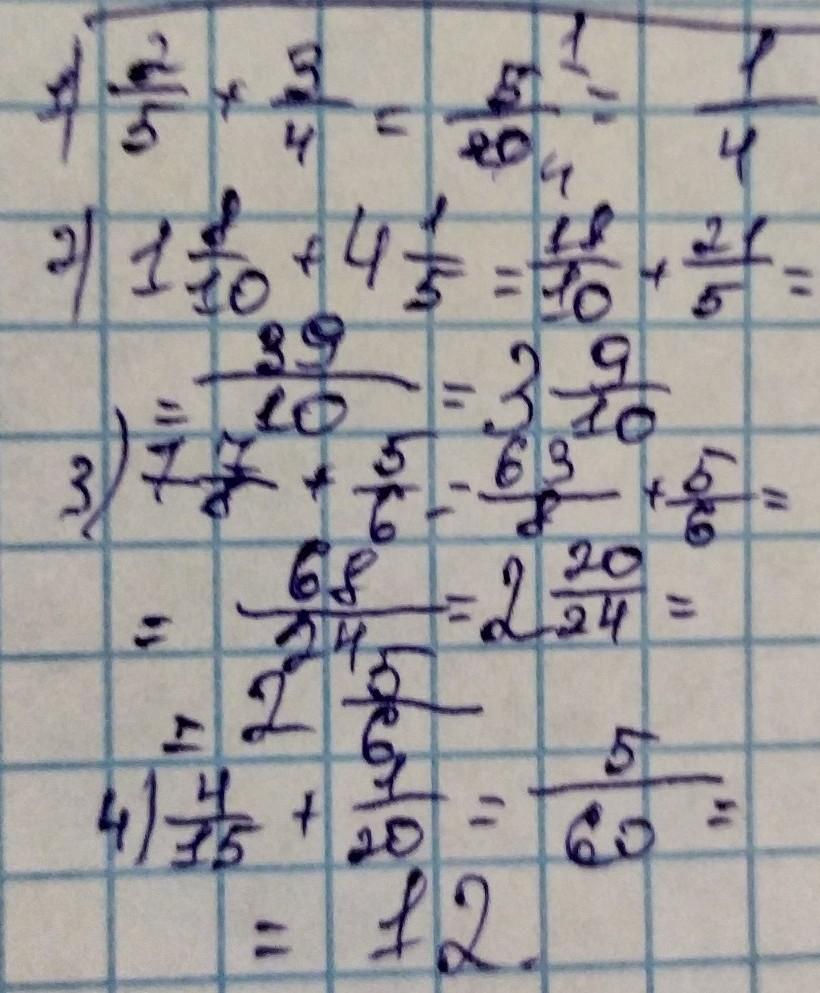 1) 2/5 + 3/4 = 5/20 1 4 = 1/4
2) 1 8/10 + 4 1/5 = 18/10 + 21/5 =
= 39/10 = 3 9/10
3) 7 7/8 + 5/6 = 63/8 + 5/6 =
= 68/24 = 2 20/24 =
= 2 5/6
4) 4/15 + 1/20 = 5/60 =
= 12.